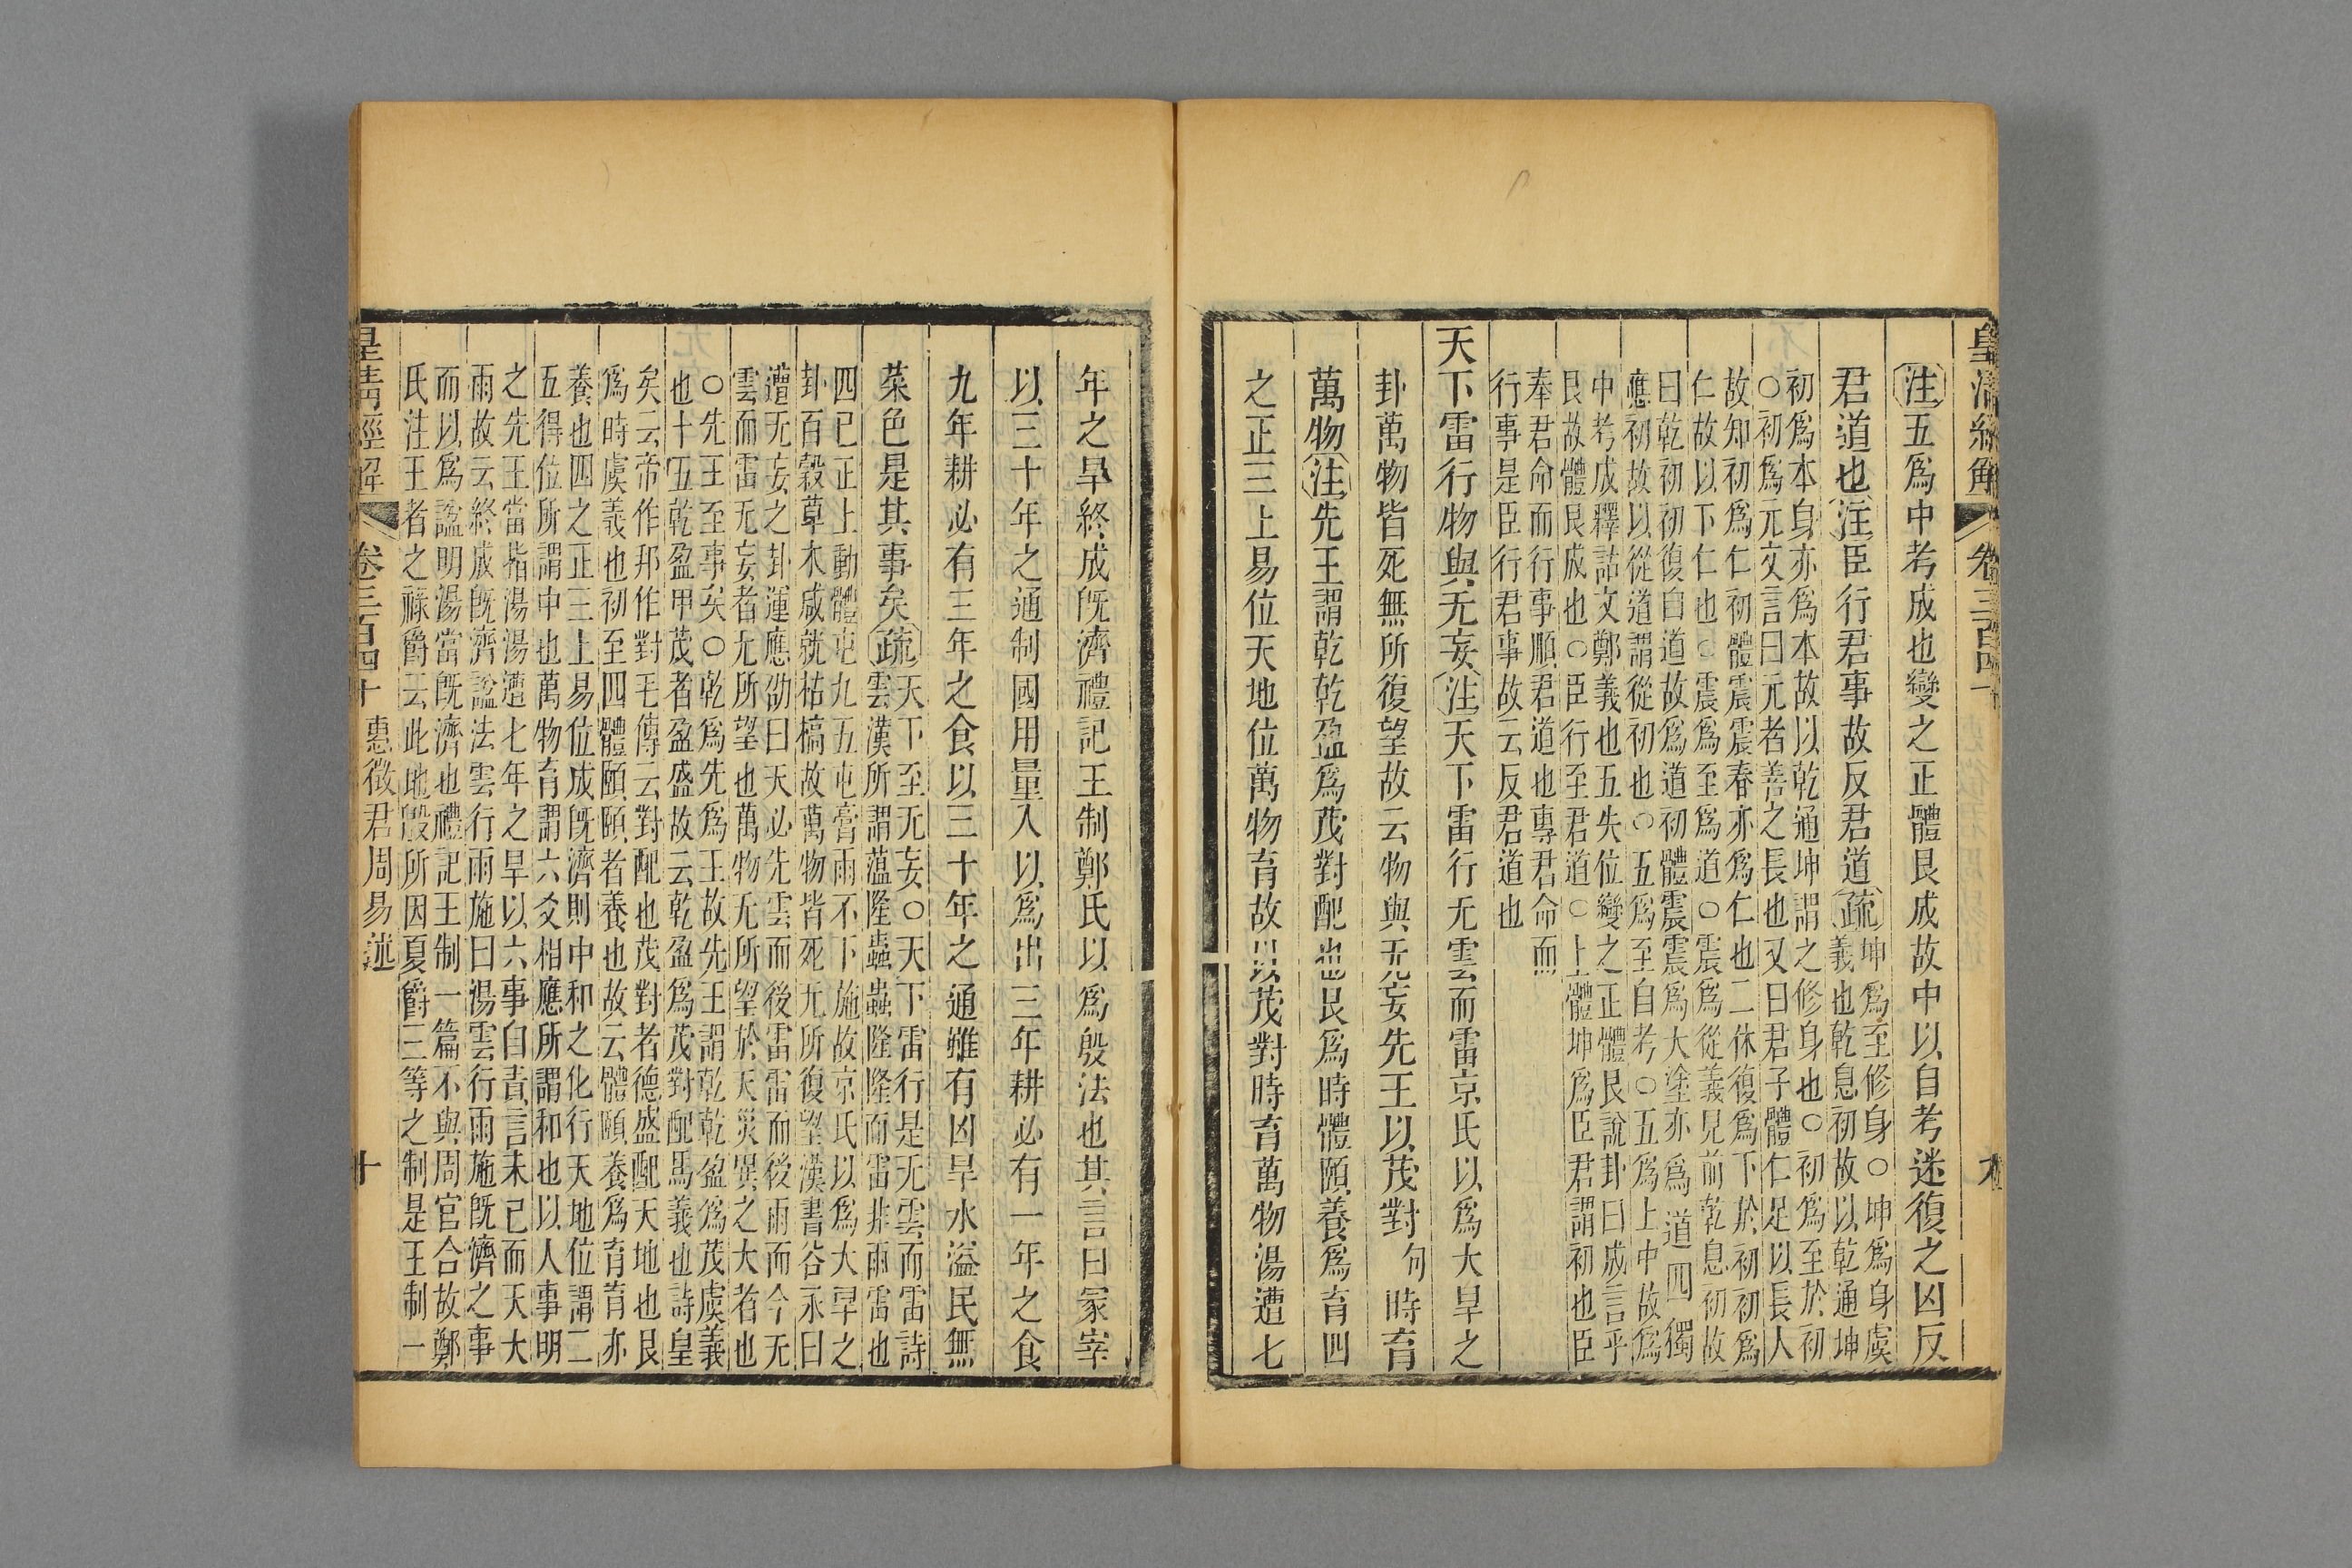 皇清經解 卷三百四十
注五爲中考成也變之正體艮成故中以自考迷復之凶反
君道也注臣行君事故反君道疏
坤爲至修身○坤爲身虞
義也乾息初故以乾通坤
初爲本身亦爲本故以乾通坤謂之修身也○初爲至於初
○初爲元文言曰元者善之長也又曰君子體仁足以長人
故知初爲仁初體震震春亦爲仁也二休復爲下於初初爲
仁故以下仁也○震爲至爲道○震爲從義見前乾息初故
曰乾初初復自道故爲道初體震震爲大塗亦爲道四獨
應初故以從道謂從初也○五爲至自考○五爲上中故爲
中考成釋詁文鄭義也五失位變之正體艮說卦曰成言乎
艮故體艮成也○臣行至君道○上體坤爲臣君謂初也臣
奉君命而行事順君道也專君命而
行事是臣行君事故云反君道也
天下雷行物與无妄注天下雷行无雲而雷京氏以爲大旱之
卦萬物皆死無所復望故云物與无妄先王以茂對句時育
萬物注先王謂乾乾盈爲茂對配也艮爲時體頤養爲育四
之正三上易位天地位萬物育故以茂對時育萬物湯遭七
年之旱終成旣濟禮記王制鄭氏以爲殷法也其言曰冢宰
以三十年之通制國用量入以爲出三年耕必有一年之食
九年耕必有三年之食以三十年之通雖有凶旱水溢民無
菜色是其事矣疏
天下至无妄○天下雷行是无雲而雷詩
雲漢所謂蘊隆蟲蟲隆隆而雷非雨雷也
四已正上動體屯九五屯膏雨不下施故京氏以爲大旱之
卦百穀草木咸就枯槁故萬物皆死无所復望漢書谷永曰
遭无妄之卦運應劭曰天必先雲而後雷雷而後雨而今无
雲而雷无妄者无所望也萬物无所望於天災異之大者也
○先王至事矣○乾爲先爲王故先王謂乾乾盈爲茂虞義
也十五乾盈甲茂者盈盛故云乾盈爲茂對配馬義也詩皇
矣云帝作邦作對毛傳云對配也茂對者德盛配天地也艮
爲時虞義也初至四體頤頤者養也故云體頤養爲育育亦
養也四之正三上易位成旣濟則中和之化行天地位謂二
五得位所謂中也萬物育謂六爻相應所謂和也以人事明
之先王當指湯湯遭七年之旱以六事自責言未已而天大
雨故云終成旣濟諡法雲行雨施曰湯雲行雨施旣濟之事
而以爲諡明湯當旣濟也禮記王制一篇不與周官合故鄭
氏注王者之祿爵云此地殷所因夏爵三等之制是王制一
皇清經解 卷三百四十 惠徵君周易述 十